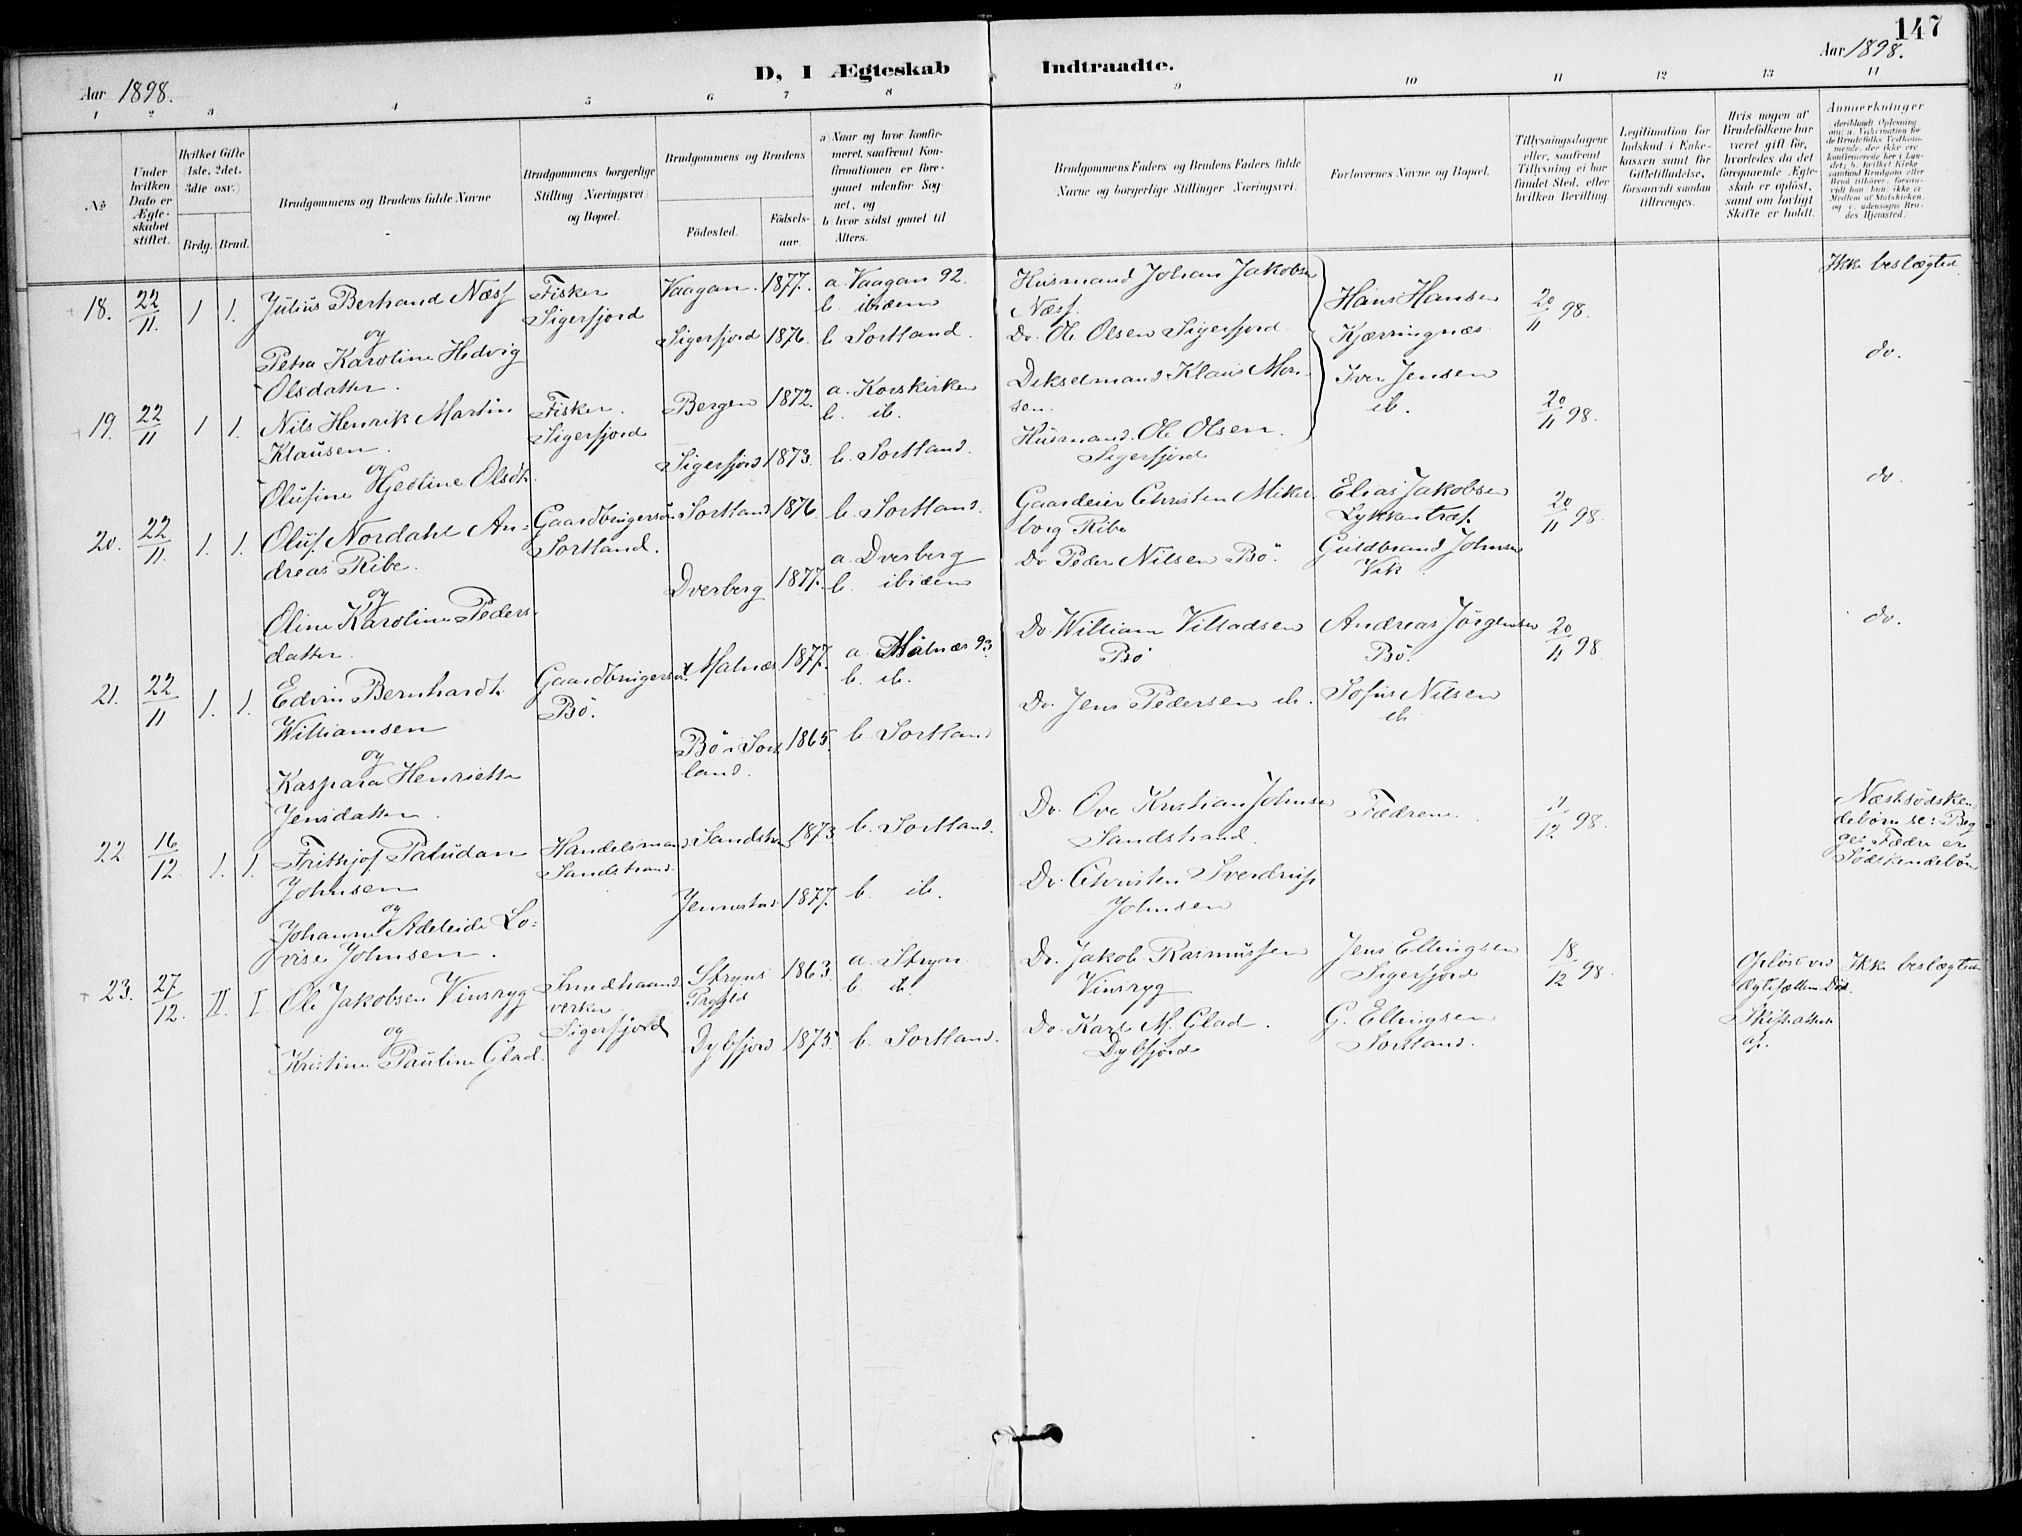 147
Aar 1898.
D, I Ægteskab Indtraadte.
Aar 1898.
1 2 3 4 5 6 7 8 9 10 11 12 13 14
№
Under hvilken Dato er Ægteskabet stiftet.
Hvilket Gifte (1ste, 2det, 3die osv.)
Brdg. Brud.
Brudgommens og Brudens fulde Navne
Brudgommens borgerlige Stilling (Næringsvei) og Bopæl.
Brudgommens og Brudens
Fødested.
Fødsels-aar.
a) Naar og hvor konfirmeret, saafremt Konfirmationen er foregaaet udenfor Sognet, og
b hvor sidst gaaet til Alters.
Brudgommens Faders og Brudens Faders fulde Navne og borgerlige Stillinger (Næringsvei.
Forlovernes Navne og Bopæl.
Tillysningsdagene eller, saafremt Tillysning ei har fundet Sted, efter hvilken Bevilling
Legitimation for Indskud i Enkekassen samt for Giftetilladelse, forsaavidt saadan tiltrænges.
Hvis nogen af Brudefolkene har været gift før, hvorledes da det foregaaende Ægteskab er opløst, samt om lovligt Skifte er holdt.
Anmerkninger
18. 22/11. 1 1. Julius Berhand Næss
og
Petra Karoline Hedvig
Olsdatter.
Fisker
Sigerfjord
Vaagan. 1877. a. Vaagan 92.
b. ibidem
Sigerfjord 1876. b. Sortland.
Husmand Johan Jakobsen
Næss.
Do. Ole Olsen Sigerfjord.
Hans Hansen
Kjærringnæs
20/11 98.
Ikke beslægted
19. 22/11 1 1. Nils Henrik Martin
Klausen.
og
Olufine Hjertine Olsdtr.
Fisker.
Sigerfjord
Bergen 1872. a. Korskirken
b. ib.
Sigerfjord 1873. b. Sortland.
Dekselmand Klaus Mon-
sen.
Husmand Ole Olsen.
Sigerfjord
Iver Jensen
ib.
20/11 98.
do.
20. 22/11. 1. 1. Oluf Nordahl An-
dreas Ribe.
og
Oline Karoline Peders-
datter.
Gaardbrugersøn
Sortland.
Sortland 1876. b. Sortland.
Dverberg 1877. a. Dverberg
b. ibidem
Gaardeier Christen Mikel-
borg Ribe
Do Peder Nilsen Bö.
Elias Jakobsen
Lykkentræf.
Guldbrand Johnsen
Vik
20/11 98.
do.
21. 22/11 1. 1. Edvin Bernhardt
Williamsen
og
Kaspara Henriette
Jensdatter.
Gaardbrugersøn
Bö.
Malnæs 1877. a. Malnæs 93.
b. ib.
Bö i Sort-
land. 1865. b. Sortland
Do William Villadsen
Bö
Do. Jens Pedersen ib.
Andreas Jørgensen
Bö.
Sofus Nilsen
ib
20/11 98.
do.
22 16/12. 1. 1. Frithjof Paludan
Johnsen
og
Johanne Adeleide Lo-
vise Johnsen.
Handelsmand
Sandstrand.
Sandstrand 1873 b. Sortland.
Jennestad 1877. b. ib.
Do. Ove Kristian Johnsen
Sandstrand.
Do. Christen Sverdrup
Johnsen
Fædrene.
11/12 98.
Næstsødsken-
debørn se: Beg-
ges Fædre er
Sødskendebørn
23. 27/12. II. I. Ole Jakobsen Vinsryg
og
Kristine Pauline Glad.
Smedhaand-
værker
Sigerfjord
Stryns
Prgjld 1863 a. Stryn
b do.
Dybfjord 1875. b. Sortland.
Do. Jakob Rasmussen
Vinsryg
Do. Karl M. Glad.
Dybfjord
Jens Ellingsen
Sigerfjord
G. Ellingsen
Sortland.
18/12 98.
Opløst ved
Ægtefællens Død.
Skifteattest
af.
Ikke beslægtede